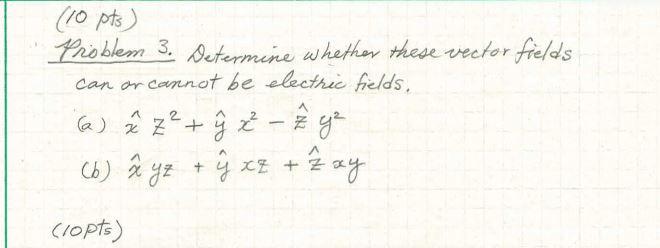 (10 pts)
Problem 3. Determine whether these vector fields
can or cannot be electric fields.
(a) x̂ z² + ŷ x² − ẑ y²
(b) x̂ yz + ŷ xz + ẑ xy
(10pts)